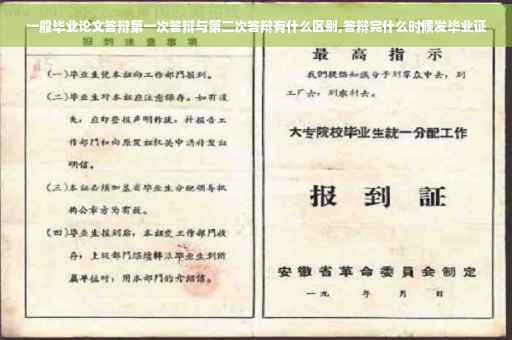 一般毕业论文答辩第一次答辩与第二次答辩有什么区别,答辩完什么时候发毕业证
报到注意事项
(一)毕业生凭本证向工作部门报到。
(二)毕业生对本证应注意保存。如有遗
失，应即登报声明作废，并报告工
作部门和向原发证机关申请补发证
明信。
(三)本证必须加盖省毕业生分配领导机
构公章方为有效。
(四)毕业生报到后，本证交工作部门收
存，上级部门继续转派毕业生到所
属单位时，用本部门的介绍信。
最高指示
我们提倡知识分子到群众中去，到
工厂去，到农村去。
大专院校毕业生統一分配工作
报到証
安徽省革命委員会制定
一九 年 月 日